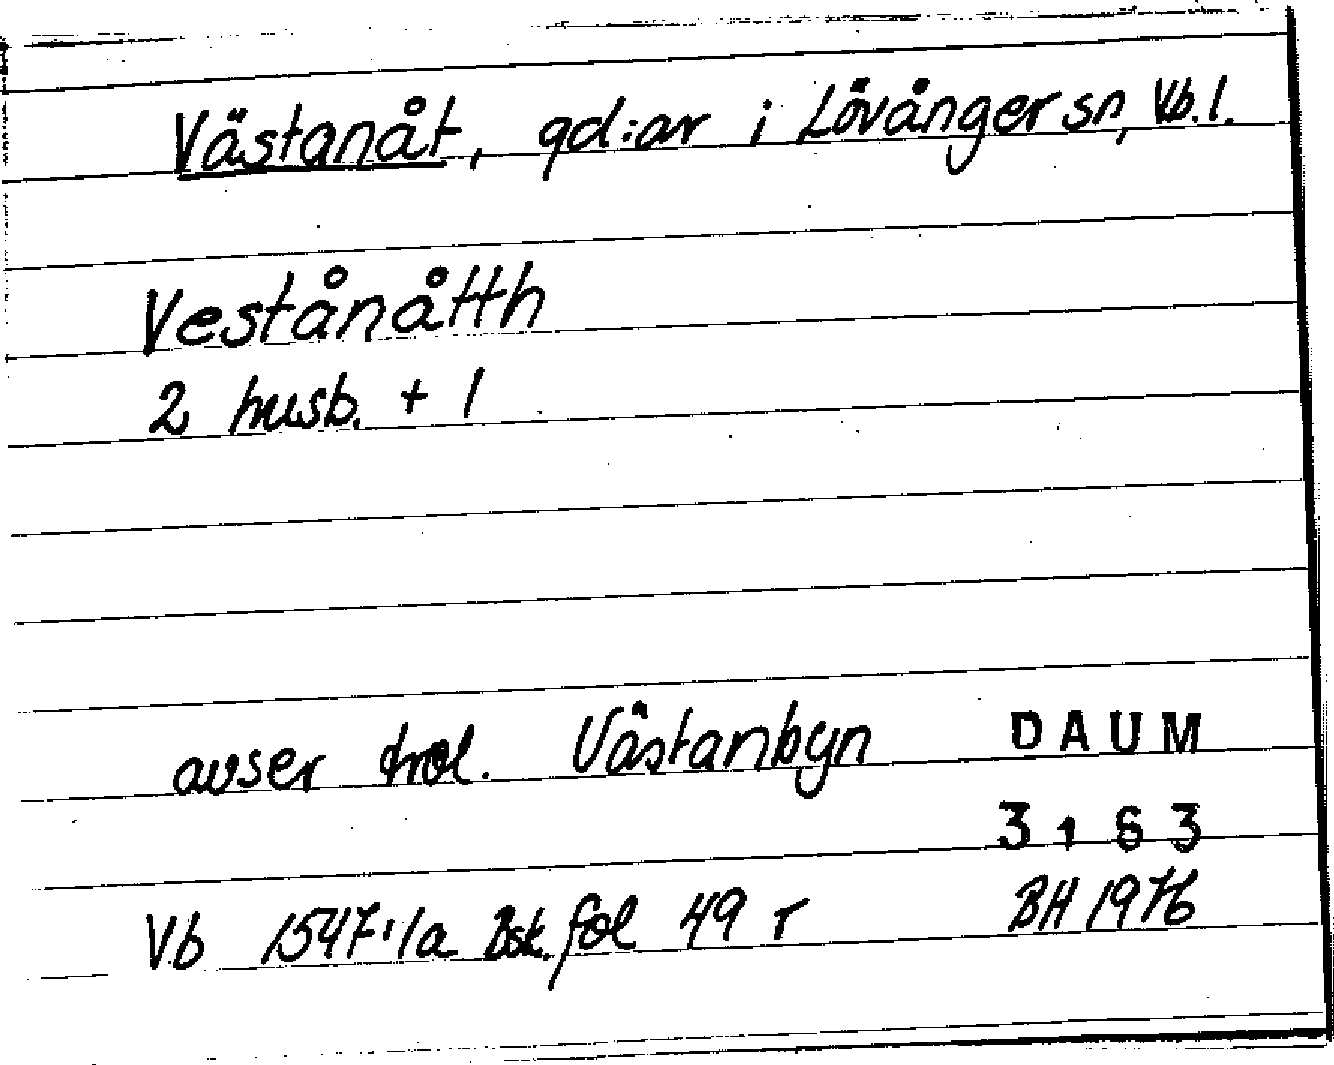 Västanåt, gd:ar i Lövånger sn, Vb. l.
Vestånåtth
2 husb. + 1
avser trol. Västanbyn
DAUM
3163
Vb 1547:1a Bsk. fol 49 r
BH 1976